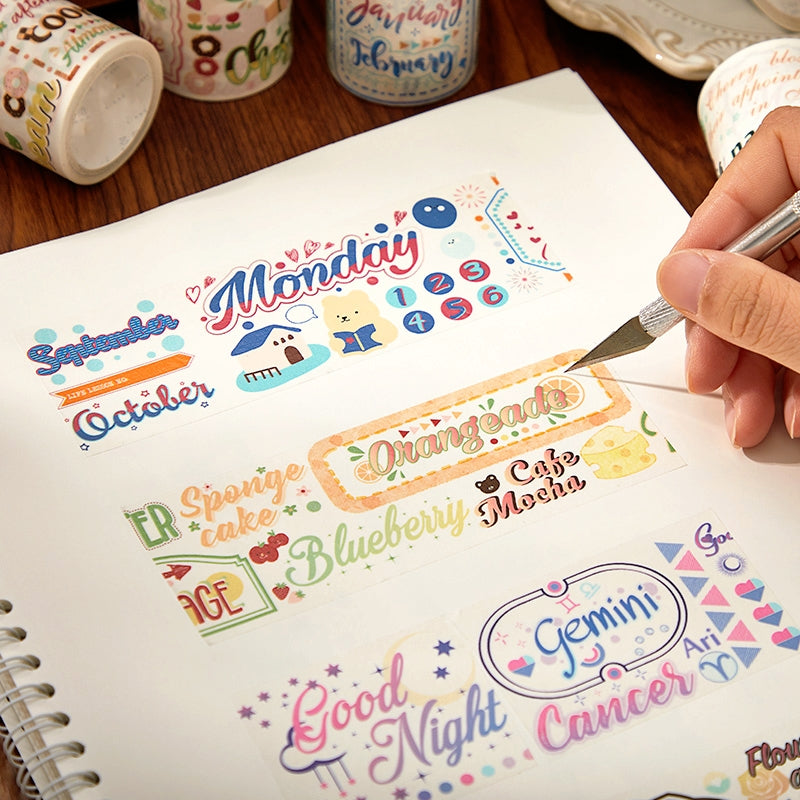 January
February
Cherry blo
appoint
in A
Monday
September
LIFE LESSON NO.
October
1 2 3
4 5 6
Orangeade
Cafe
Mocha
ER
Sponge
cake
Blueberry
AGE
Gemini
Ari
Cancer
Good
Night
Flow